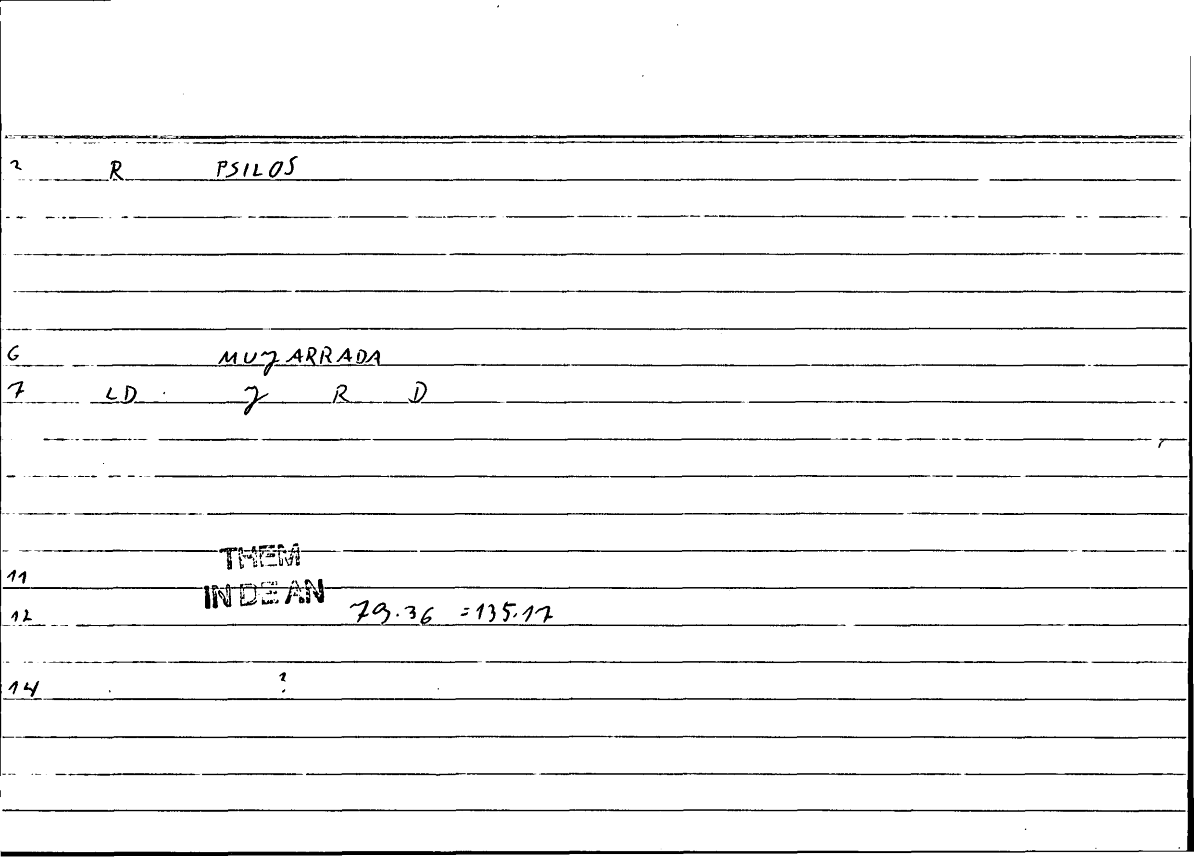 2 R PSILOS
6 MUZARRADA
7 LD Z R D
THEM
11
IN DE AN
12 79.36 =135.17
14 ?